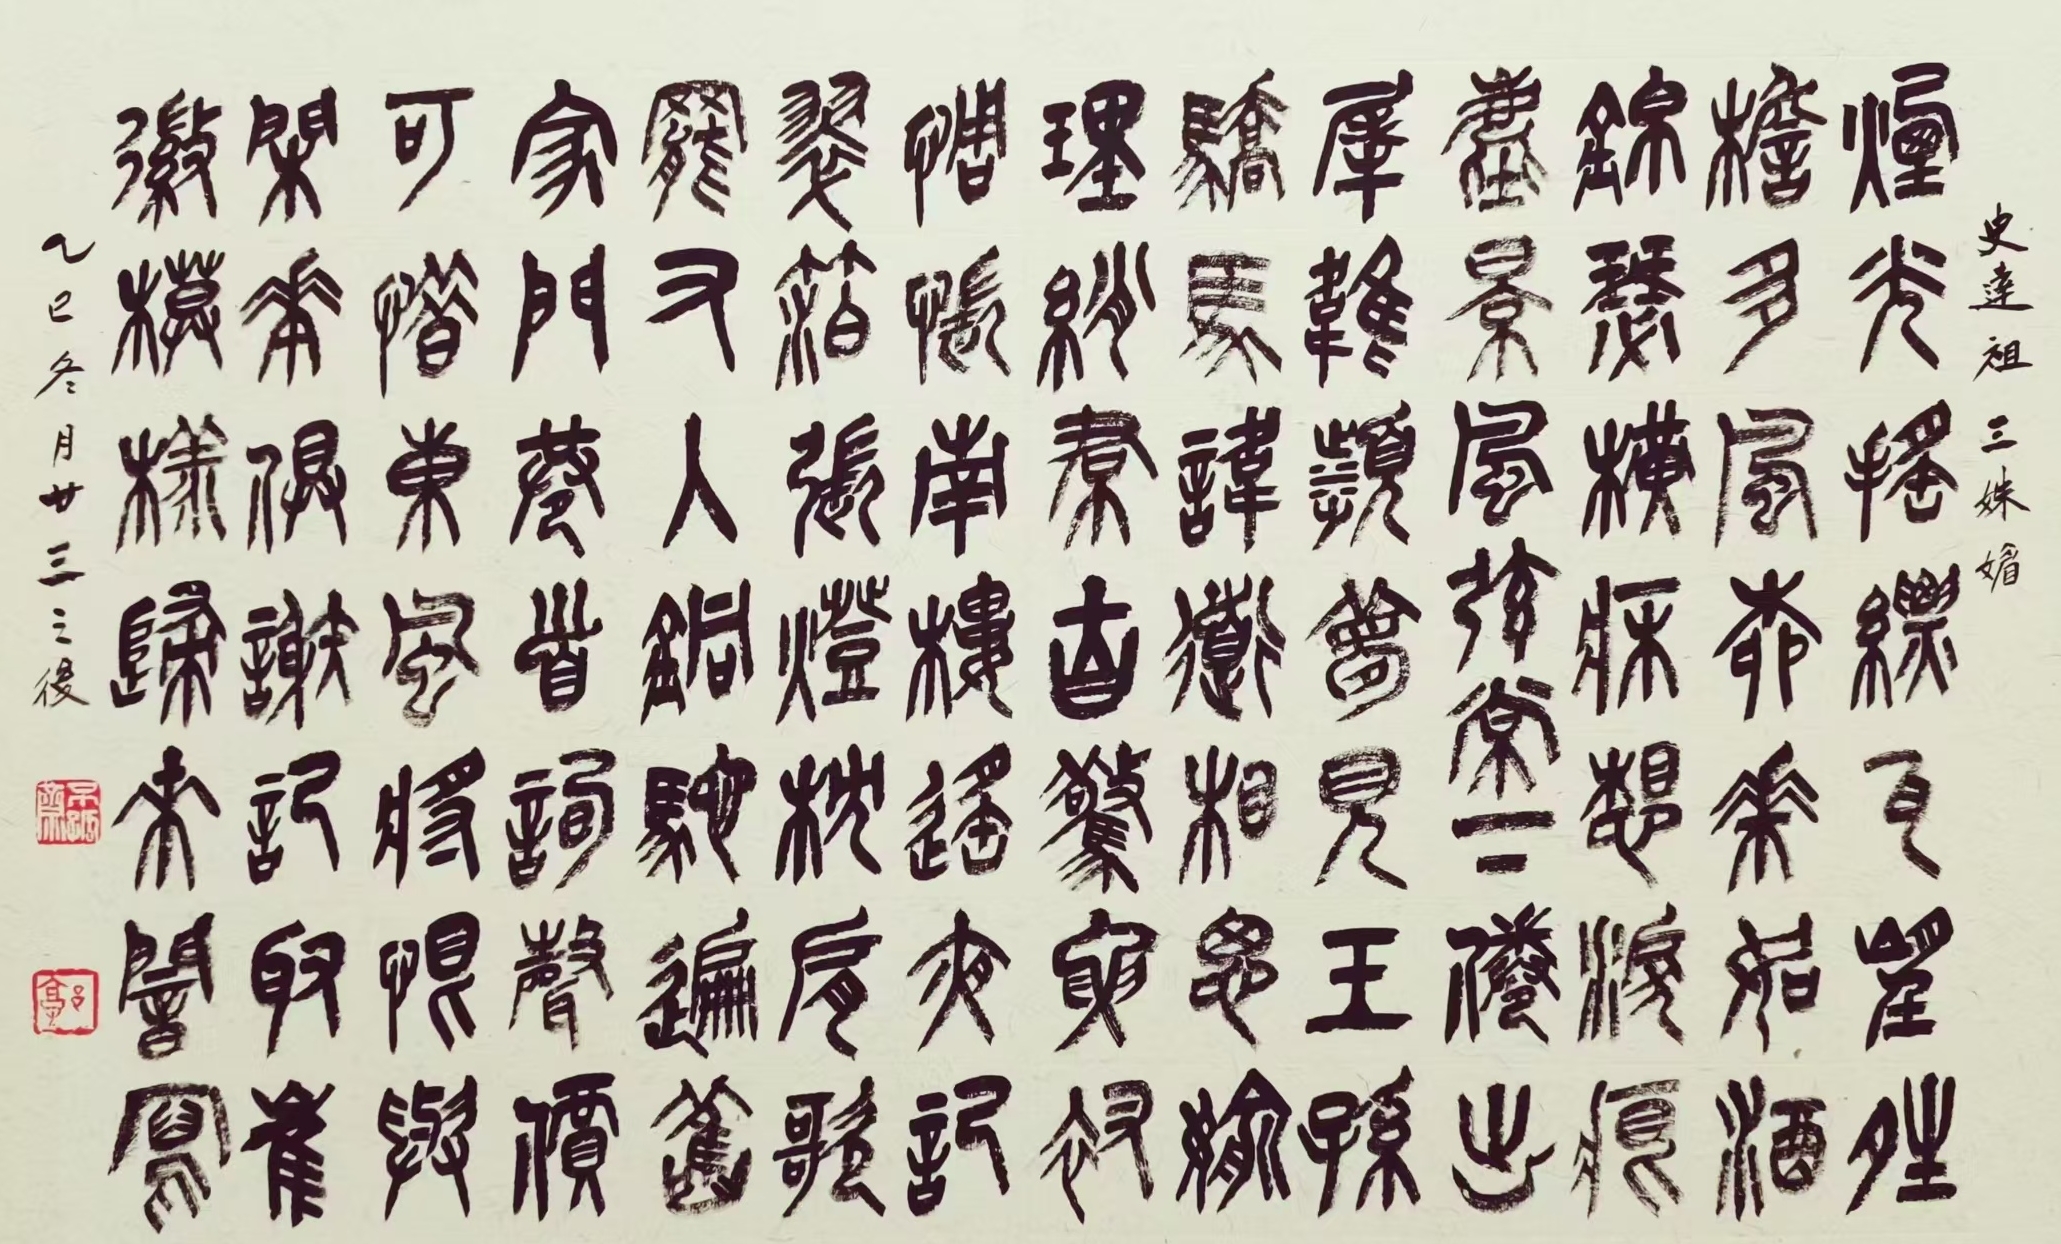 史達祖 三姝媚
煙光搖縹瓦望晴
檐多風柳花如洒
錦瑟橫牀想淚痕
塵景風弦常下倦出
犀帷頻夢見王孫
驕馬諱道相思偷
理綃帬自驚腰衩
惆悵南樓遙夜記
翠箔張燈枕肩歌
罷又入銅駝遍舊
家門巷首詢聲價
可惜東風將恨與
閑花俱謝記取崔
徽模樣歸來闇寫
乙巳冬月廿三之後